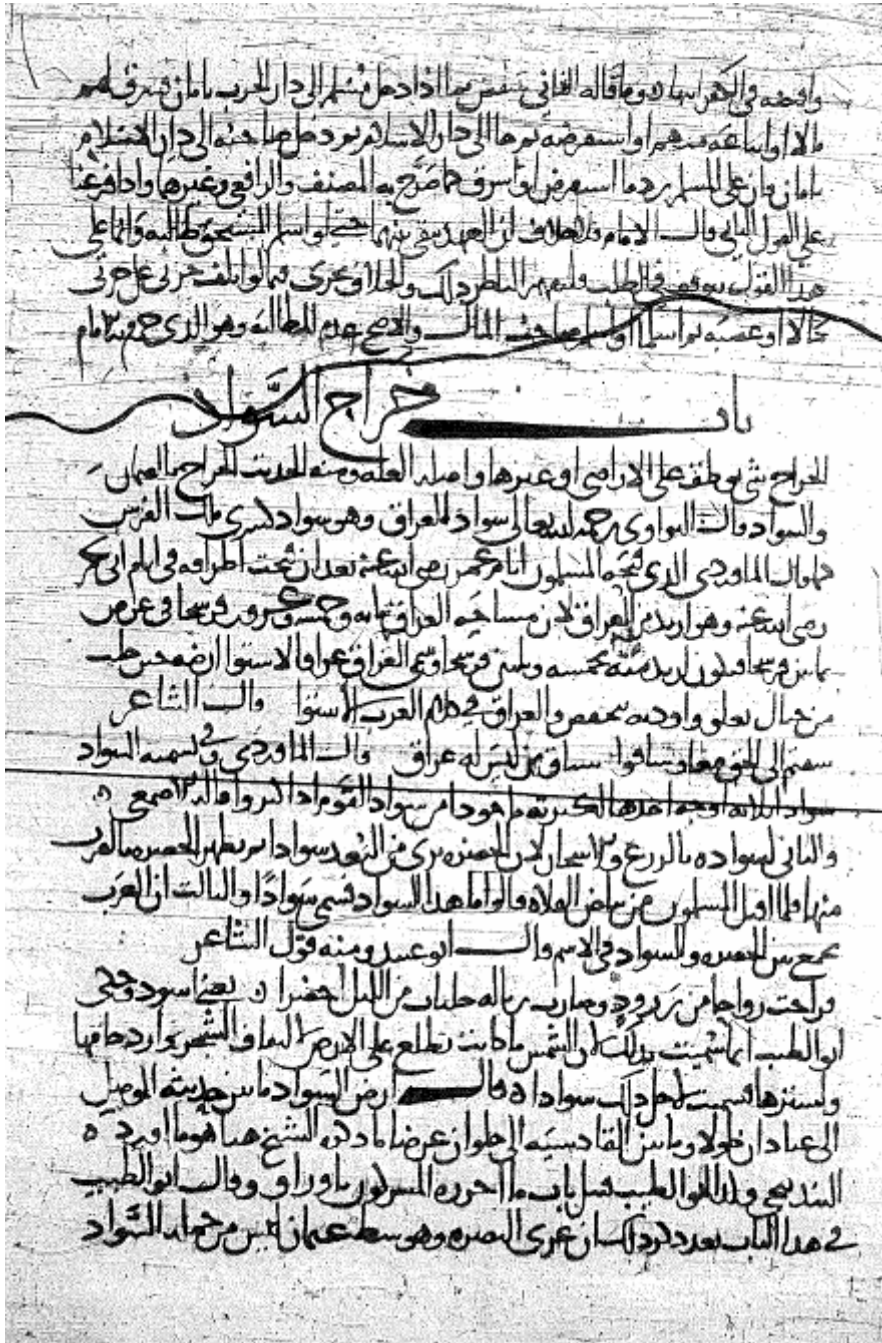 وما قاله الثاني ينتقض بما اذا دخل مسلم الى دار الحرب بامان فسرق لهم
مالا او ابتاعه منهم او استقرضه ثم الى دار الاسلام ثم دخل صاحبه الى دار الاسلام
بامان فان على المسلم رد ما استقرض او سرق كما صرح به المصنف والرافعي وغيرهما واذا فرعنا
على القول الثاني قال الامام فلا خلاف ان العهد بينهما حتى لو اسلم
هذا القول في الطلب ذلك والخلاف يجري فيما لو اتلف حربي على حربي
مالا او غصبه ثم اسلما او اسلم صاحب المال والاصح عدم المطالبة وهو الذي به الامام
باب خراج السواد
الخراج شي يوظف على الاراضي او غيرها واصله الغلة ومنه الحديث الخراج بالضمان
والسواد قال النواوي رحمه الله تعالى سواد العراق وهو سواد كسرى ملك الفرس
كما قال الماوردي الذي فتحه المسلمون ايام عمر رضي الله عنه بعد ان فتحت اطرافه في ايام ابي بكر
رضي الله عنه وهو ازيد من العراق لان مساحة العراق مايه وخمسة وعشرون فرسخا في عرض
ثمانين فرسخا فيكون ازيد منه بخمسة وثلثين فرسخا وسمي العراق عراقا لاستوا ارضه حين خلت
من جبال تعلو واودية تنخفض والعراق في كلام العرب الاستوا قال الشاعر
سقتم الى الحق معا وساقوا سياق من ليس له عراق قال الماوردي وفي تسمية السواد
سوادا ثلاثة اوجه احدها لكثرته ماخوذ من سواد القوم اذا كثروا قاله الاصمعي
والثاني لسواده بالزرع والاشجار لان الخضرة ترى من البعد سوادا ثم تظهر الخضرة بالقرب
منها فلما اقبل المسلمون من بياض الفلاة قالوا ما هذا السواد فسمي سوادا والثالث ان العرب
تجمع بين الخضرة والسواد في الاسم قال ابو عبيد ومنه قول الشاعر
فراحت رواحا من جلباب من الليل اخضرا يعني اسود وحكى
ابو الطيب انما سميت بذلك لان الشمس ما كانت تطلع على الارض لالتفاف الشجر وازدحامها
وتسترها فسميت لاجل ذلك سوادا قال ارض السواد ما بين حديثة الموصل
الى عبادان طولا وما بين القادسية الى حلوان عرضا ما ذكره الشيخ هنا هو ما اورده
البندنيجي ابو الطيب قبل باب ما احرزه المشركون وقال ابو الطيب
في هذا الباب بعد ذكر ذلك ان غربي البصرة وهو شط عثمان ليس من جملة السواد